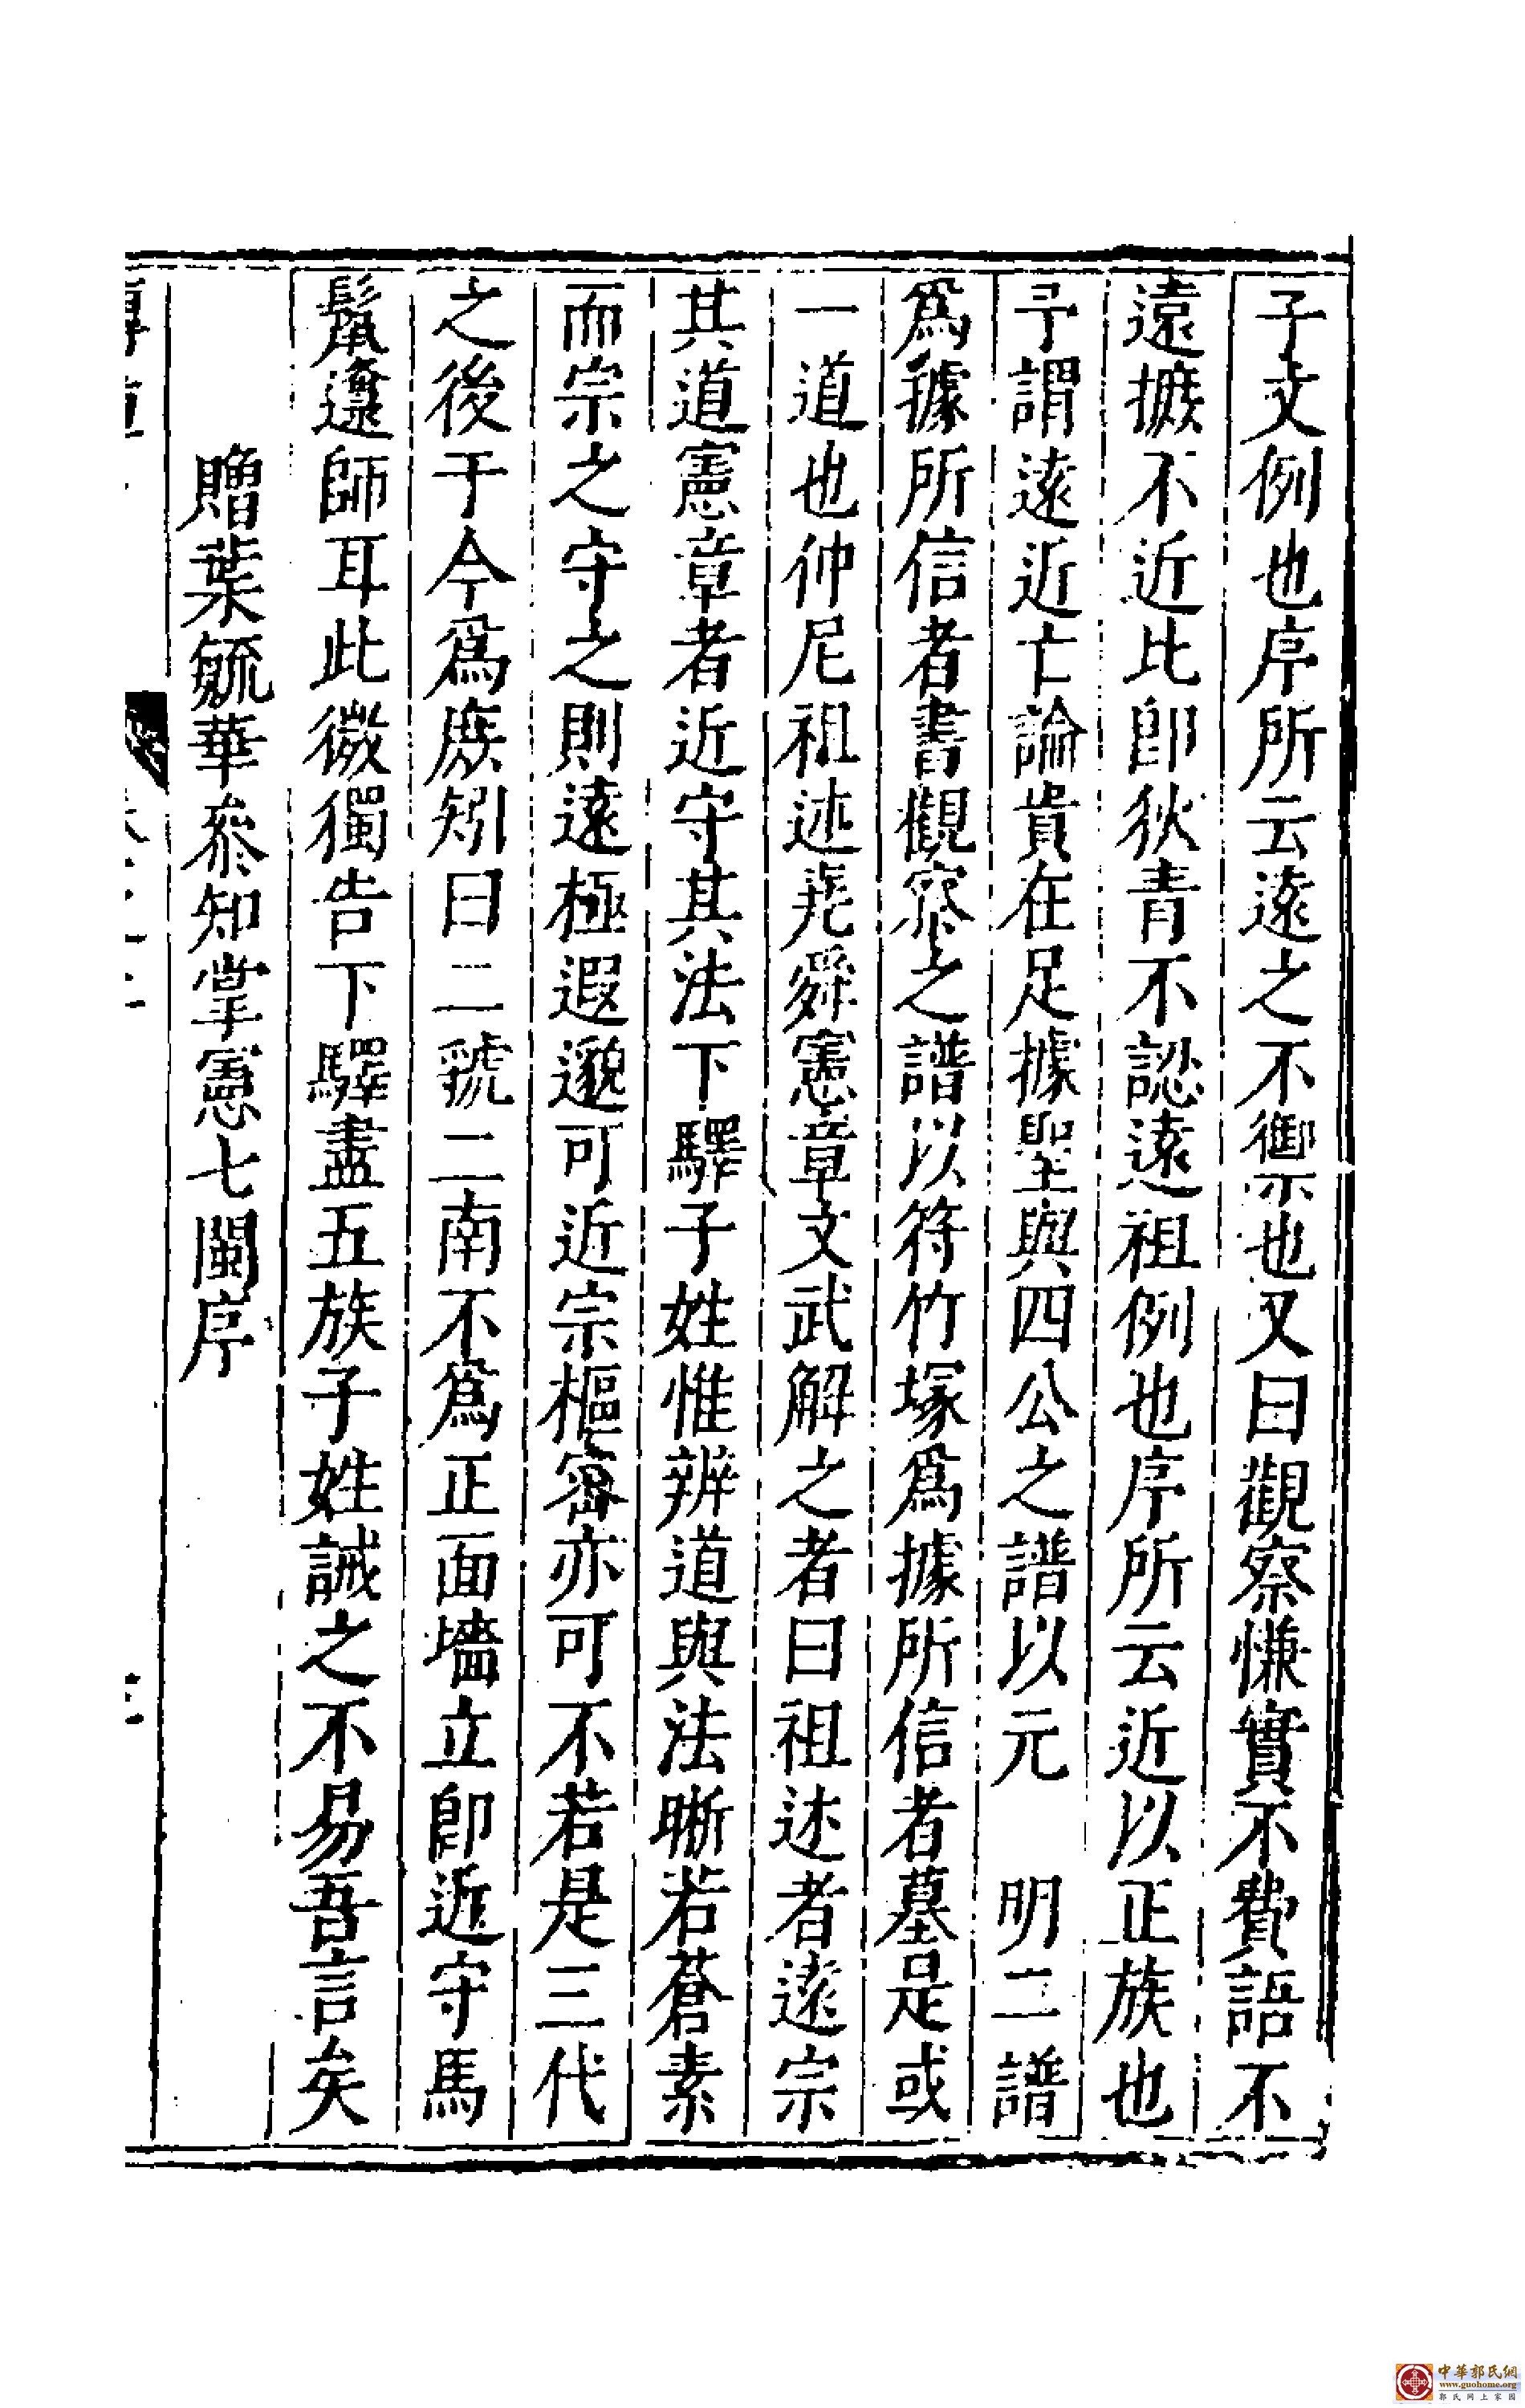 子文例也序所云遠之不禦也又曰觀察慊實不費語不
遠摭不近比卽狄青不認遠祖例也序所云近以正族也
予謂遠近亡論貴在足據聖與四公之譜以元　明二譜
爲據所信者書觀察之譜以符竹塚爲據所信者墓是或
一道也仲尼祖述堯舜憲章文武解之者曰祖述者遠宗
其道憲章者近守其法下驛子姓惟辨道與法晰若蒼素
而宗之守之則遠極遐邈可近宗樞密亦可不若是三代
之後于今爲庶矧曰二虢二南不爲正面墻立卽近守馬
鬣蘧師耳此微獨告下驛盡五族子姓誡之不易吾言矣
贈葉毓華叅知掌憲七閩序
中華郭氏網
www.guohome.org
郭氏网上家园